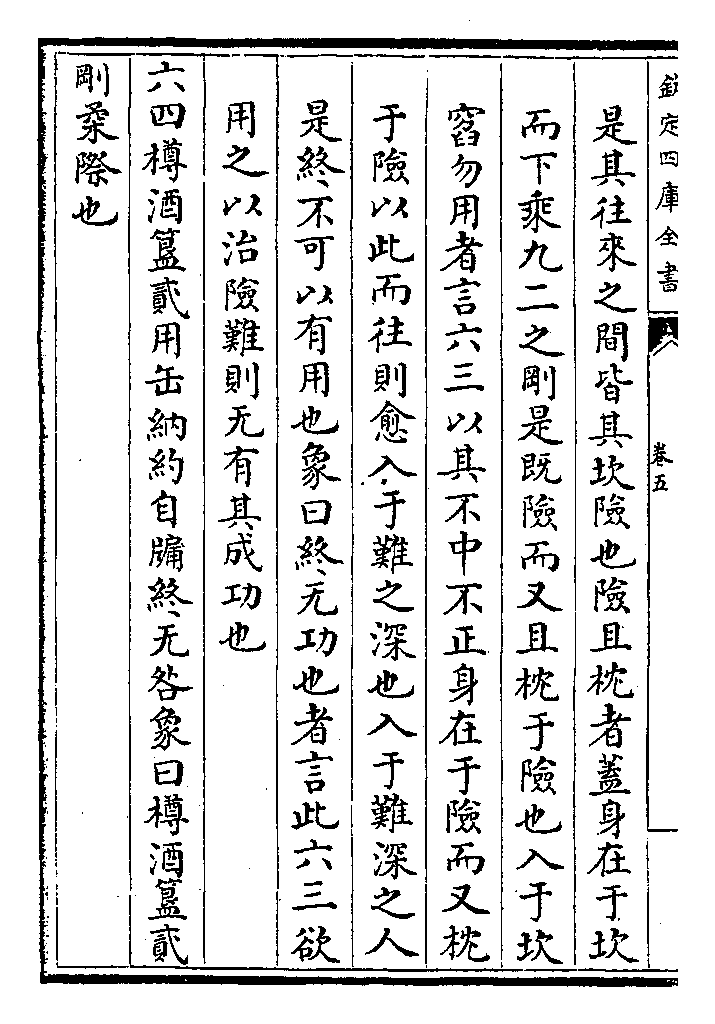 欽定四庫全書
卷五
是其往來之間皆其坎險也險且枕者蓋身在于坎
而下乘九二之剛是既險而又且枕于險也入于坎
窞勿用者言六三以其不中不正身在于險而又枕
于險以此而往則愈入于難之深也入于難深之人
是終不可以有用也象曰終无功也者言此六三欲
用之以治險難則无有其成功也
六四樽酒簋貳用缶納約自牖終无咎象曰樽酒簋貳
剛柔際也